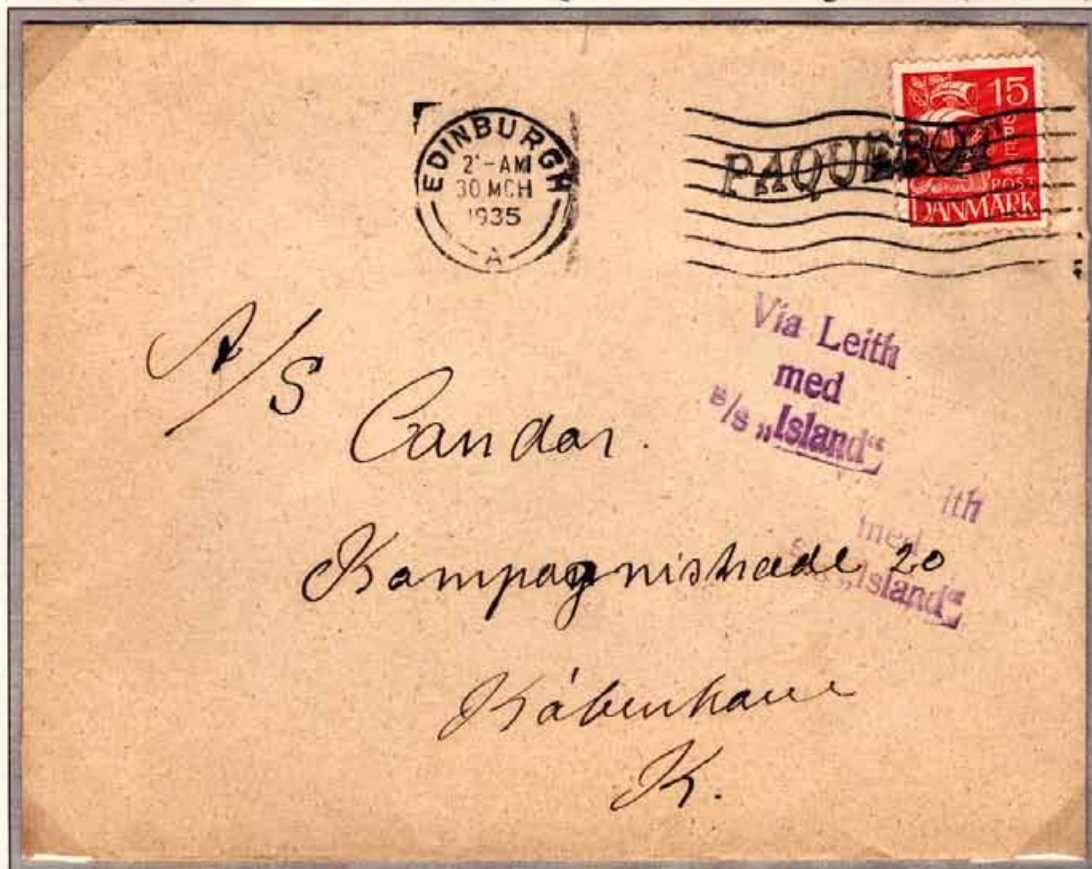 EDINBURGH
2-AM
30 MCH
1935
A
PAQUEBOT
15
POST
DANMARK
Via Leith
med
s/s „Island“
ith
med
„Island“
A/S
Candor.
Kompagnistræde 20
København
K.